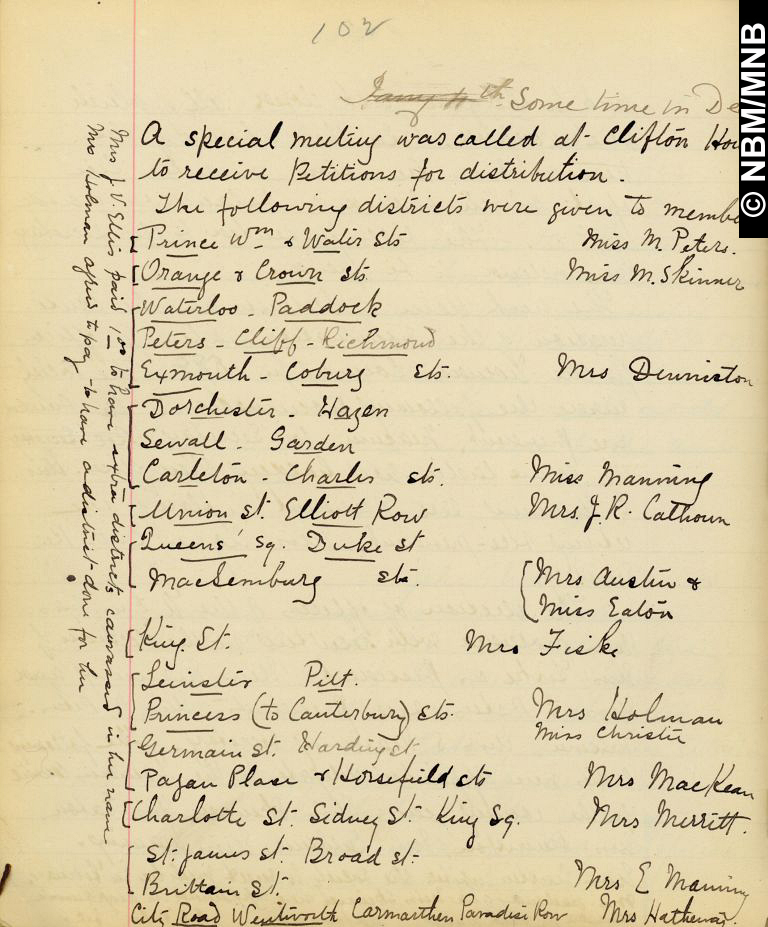 102
Jany 11th Some time in De
A special meeting was called at Clifton Hou
to receive Petitions for distribution.
The following districts were given to membe
Prince Wm & Water Sts Miss M. Peters.
Orange & Crown sts Miss M. Skinner
Waterloo - Paddock
Peters - Cliff - Richmond
Exmouth - Coburg sts. Mrs Denniston
Dorchester - Hazen
Sewall - Garden
Carleton - Charles sts. Miss Manning
Union st. Elliott Row Mrs. J. R. Calhoun
Queens' Sq. Duke st
Mecklenburg sts. Mrs Austin &
Miss Eaton
King St. Mrs Fiske
Leinster Pitt.
Princess (to Canterbury) sts. Mrs Holman
Miss Christie
Germain st. Harding st.
Pagan Place & Horsefield sts Mrs MacKean
Charlotte st. Sidney st. King Sq. Mrs Merritt.
St. James st. Broad st.
Brittain st. Mrs E Manning
City Road Wentworth Carmarthen Paradise Row Mrs Hatheway.
Mrs J. V. Ellis paid 1.00 to have extra districts canvassed in her name
Mrs Holman agreed to pay to have a district done for her
© NBM/MNB